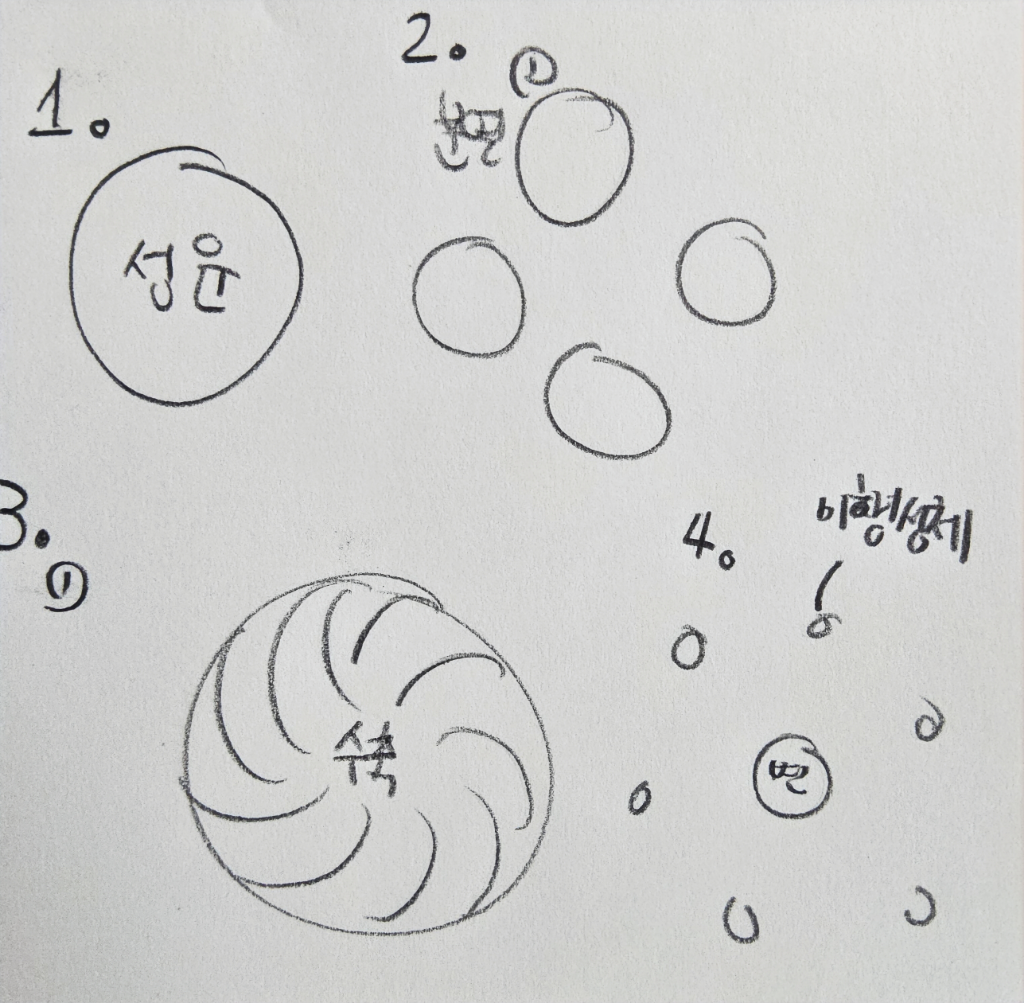 1.
성운
2.
①
분열
3.
①
수축
4.
미행성체
별